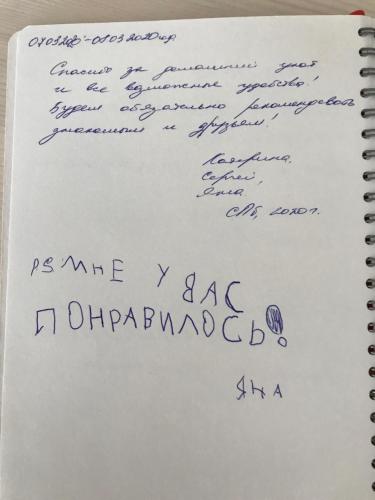 07.03.20г.-08.03.2020 год
Спасибо за домашний уют
и все возможные удобства!
Будем обязательно рекомендовать
знакомым и друзьям!
Катерина,
Сергей,
Яна.
СПб, 2020 г.
PS: МНЕ У ВАС
ПОНРАВИЛОСЬ!
ЯНА